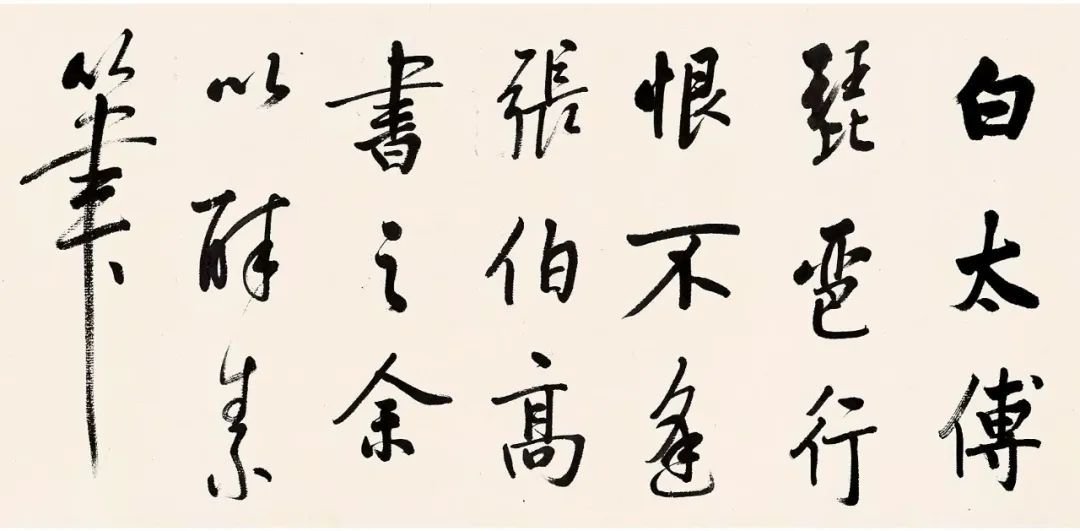 白太傅
琵琶行
恨不逢
張伯高
書之余
以醉素
筆